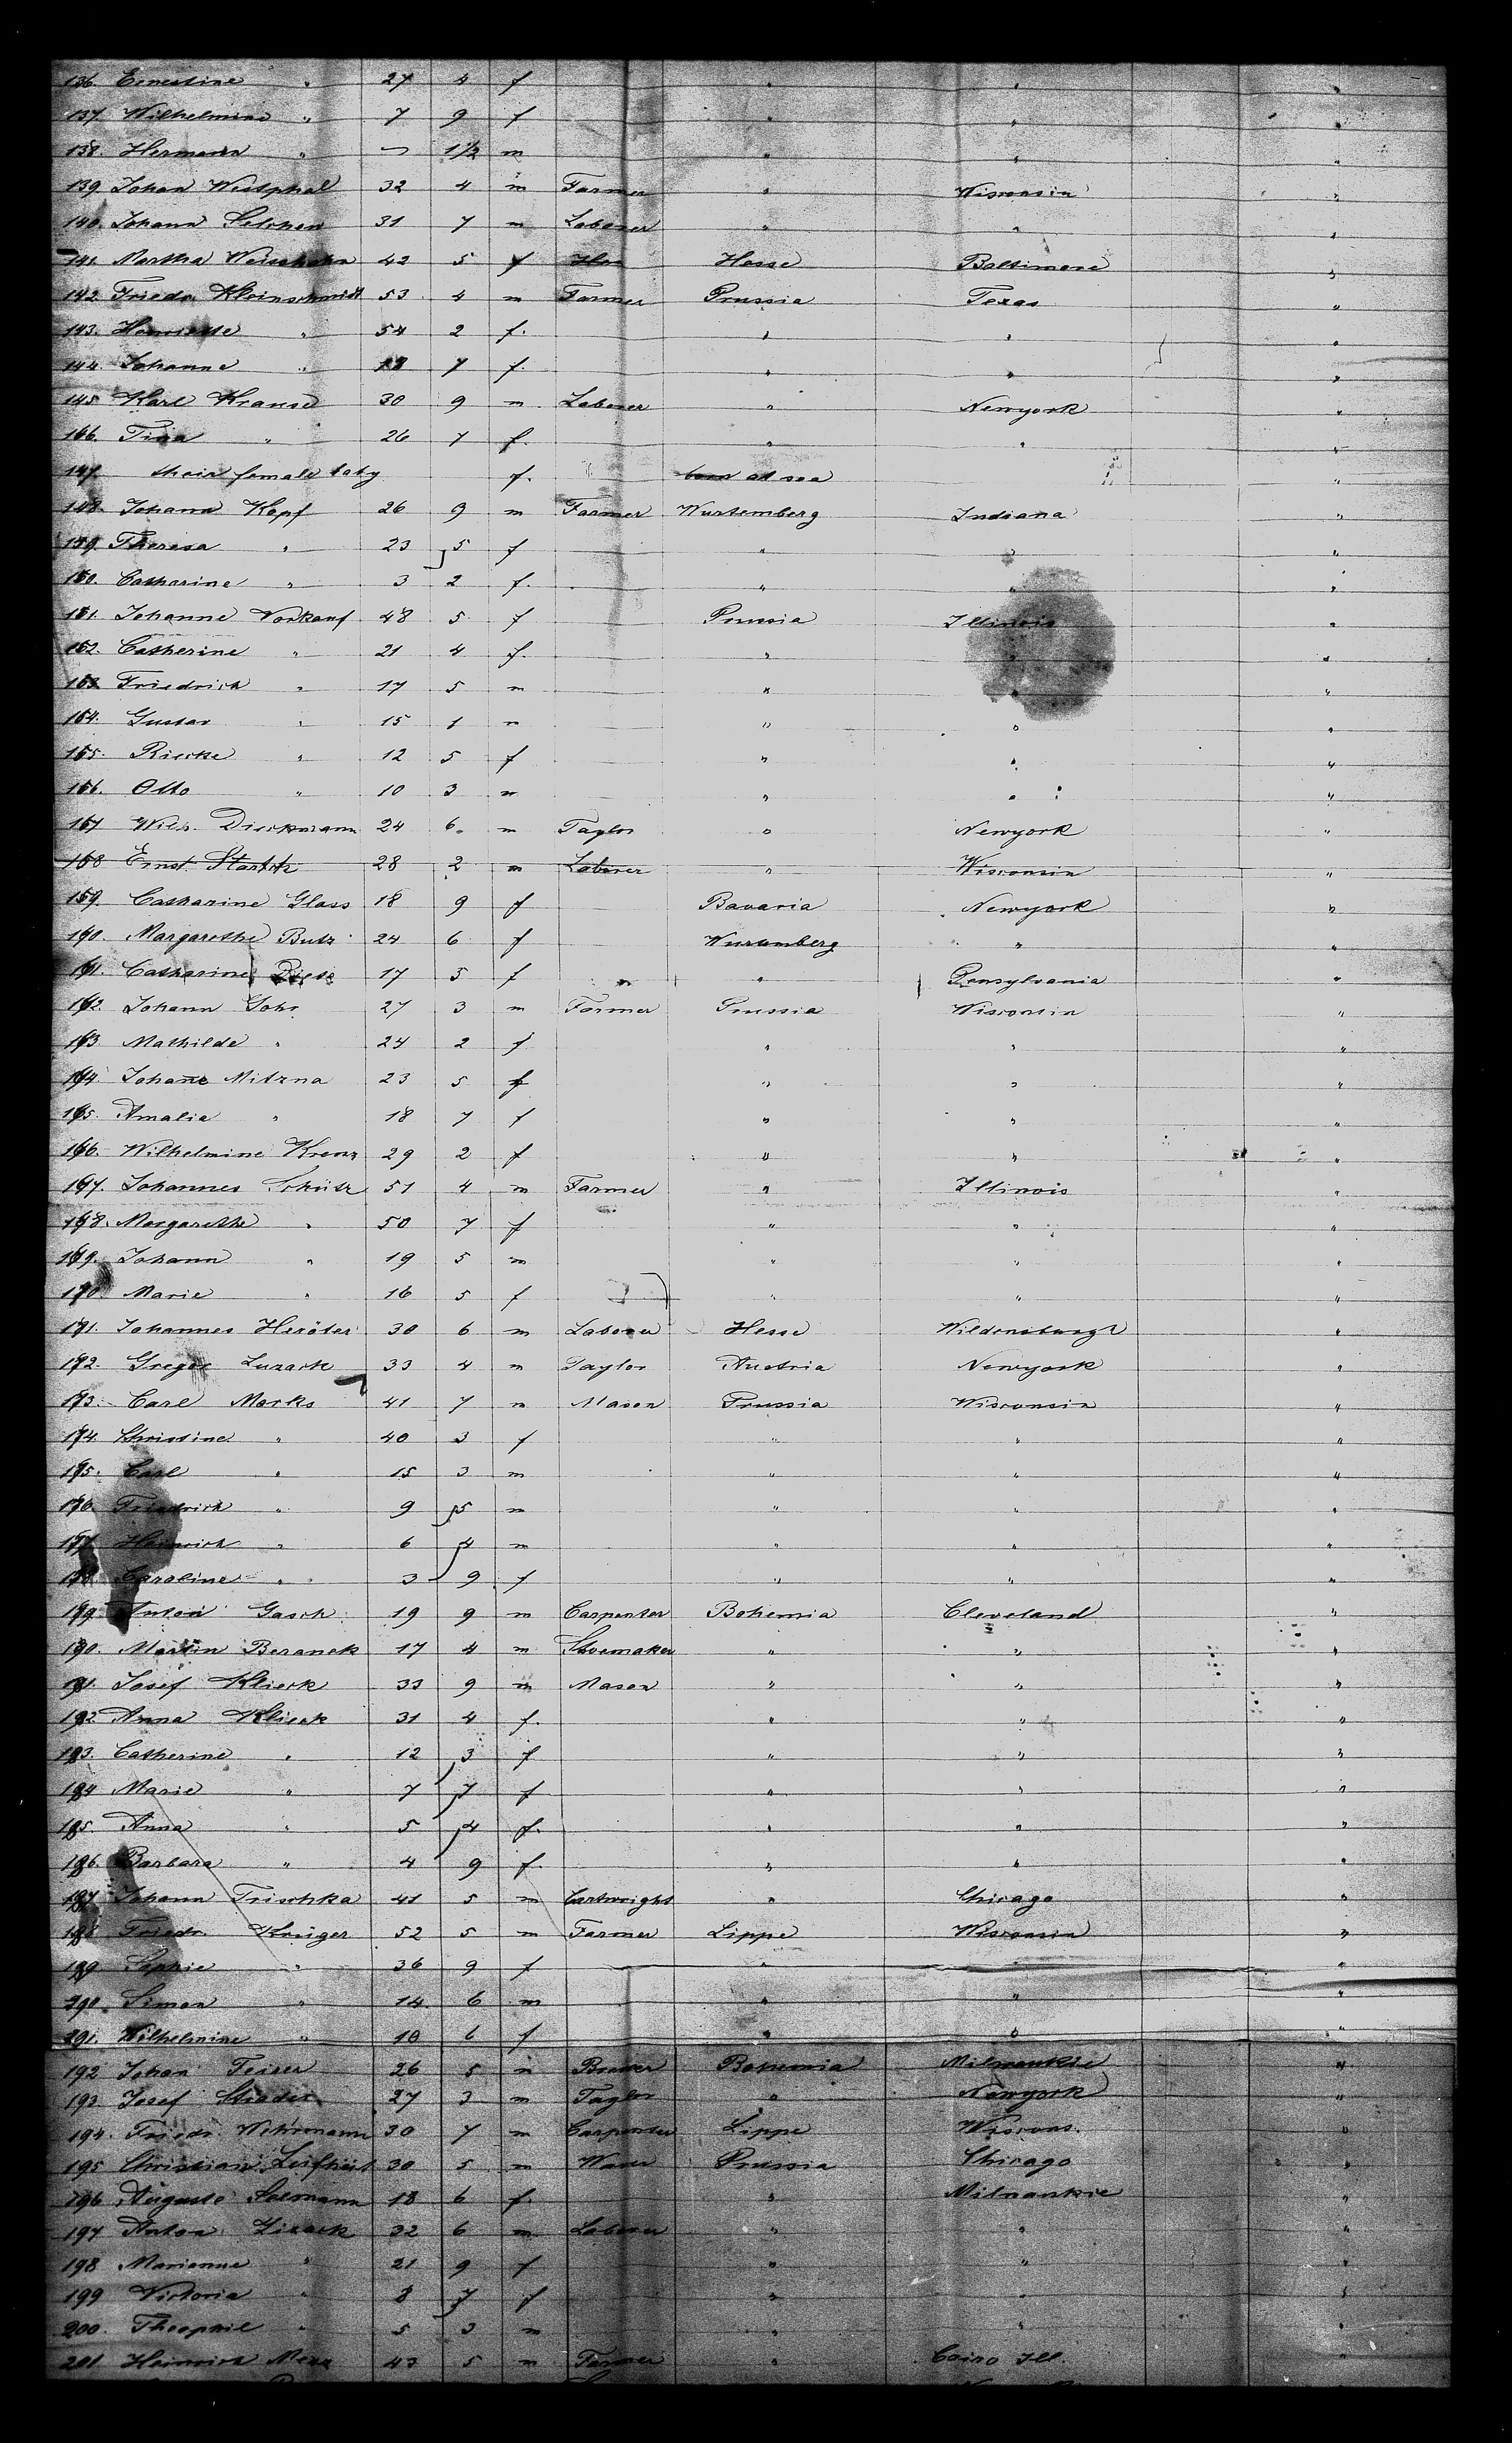 136. Ernestine " 27 4 f " " "
137. Wilhelmine " 7 9 f " " "
138. Hermann " – 1 1/2 m " " "
139. Johan Westphal 32 4 m Farmer " Wisconsin "
140. Johann Selchen 31 7 m Laborer " " "
141. Martha 42 5 f Hesse Baltimore "
142. Friedr. Kleinschmidt 53 4 m Farmer Prussia Texas "
143. Henriette " 54 2 f. " " "
144. Johanne " 7 f. " " "
145. Karl Krause 30 9 m Laborer " Newyork "
146. Tina " 26 7 f. " " "
147. their female baby f. born at sea "
148. Johann Kopf 26 9 m Farmer Wurtemberg Indiana "
149. Theresa " 23 5 f " " "
150. Catharine " 3 2 f. " " "
151. Johanne Vorkauf 48 5 f Prussia Illinois "
152. Catherine " 21 4 f. " " "
153. Friedrich " 17 5 m " " "
154. Gustav " 15 1 m " " "
155. Riecke " 12 5 f " " "
156. Otto " 10 3 m " " "
157 Wilh. Dieckmann 24 6. m Taylor " Newyork "
158 Ernst 28 2 m Laborer " Wisconsin "
159. Catharine Glass 18 9 f Bavaria Newyork "
160. Margarethe Butz 24 6 f Wurtemberg " "
161. Catharine 17 5 f " Pensylvania "
162. Johann Gohr 27 3 m Farmer Prussia Wisconsin "
163 Mathilde " 24 2 f " " "
164 Johanne Mitzna 23 5 f " " "
165. Amalia " 18 7 f " " "
166. Wilhelmine Krenz 29 2 f " " "
167. Johannes Schütz 51 4 m Farmer " Illinois "
168. Margarethe " 50 7 f " " "
169. Johann " 19 5 m " " "
170. Marie " 16 5 f " " "
171. Johannes Heröter 30 6 m Laborer Hesse "
172. Gregor Luzack 33 4 m Taylor Austria Newyork "
173. Carl Marks 41 7 m Mason Prussia Wisconsin "
174. Christine " 40 3 f " " "
175. Carl " 15 3 m " " "
176. Friedrich " 9 5 m " " "
177. Heinrich " 6 4 m " " "
178. Caroline " 3 9 f " " "
179. Anton Gasch 19 9 m Carpenter Bohemia Cleveland "
180. Martin Beranek 17 4 m Shoemaker " " "
181. Josef Klieck 33 9 m Mason " " "
182 Anna Klieck 31 4 f. " " "
183. Catherine " 12 3 f " " "
184 Marie " 7 7 f " " "
185. Anna " 5 4 f. " " "
186. Barbara " 4 9 f. " " "
187 Johann Trischka 41 5 m Cartwright " Chicago "
188 Friedr. Krüger 52 5 m Farmer Lippe Wisconsin "
189 Sophie " 36 9 f " " "
190. Simon " 14. 6 m " " "
191. Wilhelmine " 10 6 f " " "
192 Johan Feirer 26 5 m Bohemia Milwaukie "
193. Josef 27 3 m Taylor " Newyork "
194. Friedr. Wehrmann 30 7 m Carpenter Lippe Wiscons. "
195 Christian 30 5 m Prussia Chicago "
196 Auguste Salmann 18 6 f. " Milwaukie "
197 Anton Zizack 32 6 m Laborer " " "
198 Marianne " 21 9 f " " "
199 Victoria " 8 7 f " " "
200. Theophil " 5 3 m " " "
201 Heinrich 43 5 m Farmer " Cairo Ill. "